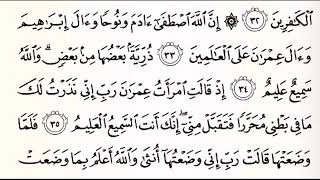 ٱلْكَٰفِرِينَ ٣٢ ۞ إِنَّ ٱللَّهَ ٱصْطَفَىٰٓ ءَادَمَ وَنُوحًا وَءَالَ إِبْرَٰهِيمَ
وَءَالَ عِمْرَٰنَ عَلَى ٱلْعَٰلَمِينَ ٣٣ ذُرِّيَّةًۢ بَعْضُهَا مِنۢ بَعْضٍ ۗ وَٱللَّهُ
سَمِيعٌ عَلِيمٌ ٣٤ إِذْ قَالَتِ ٱمْرَأَتُ عِمْرَٰنَ رَبِّ إِنِّى نَذَرْتُ لَكَ
مَا فِى بَطْنِى مُحَرَّرًا فَتَقَبَّلْ مِنِّىٓ ۖ إِنَّكَ أَنتَ ٱلسَّمِيعُ ٱلْعَلِيمُ ٣٥ فَلَمَّا
وَضَعَتْهَا قَالَتْ رَبِّ إِنِّى وَضَعْتُهَآ أُنثَىٰ وَٱللَّهُ أَعْلَمُ بِمَا وَضَعَتْ